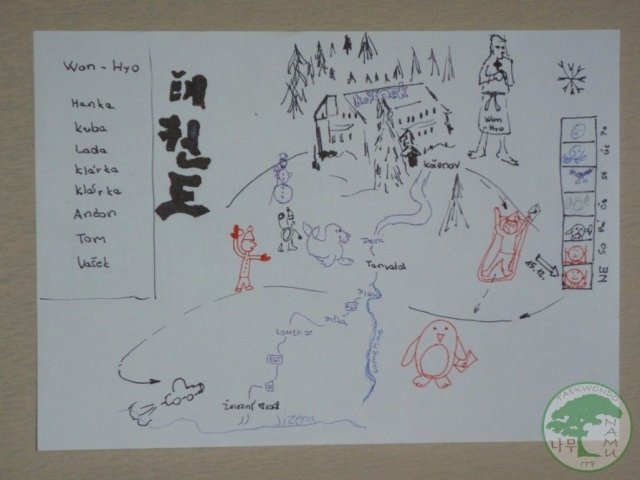 Won - Hyo
Hanka
Kuba
Lada
Klárka
Klárka
Anton
Tom
Vašek
태권도
Won
Hyo
Kořenov
Po
Út
St
Čt
Pá
So
NE
Desná
Tanvald
Kamenice
Železný Brod
Jizera
TAEKWONDO
NAMU
나무
ITF